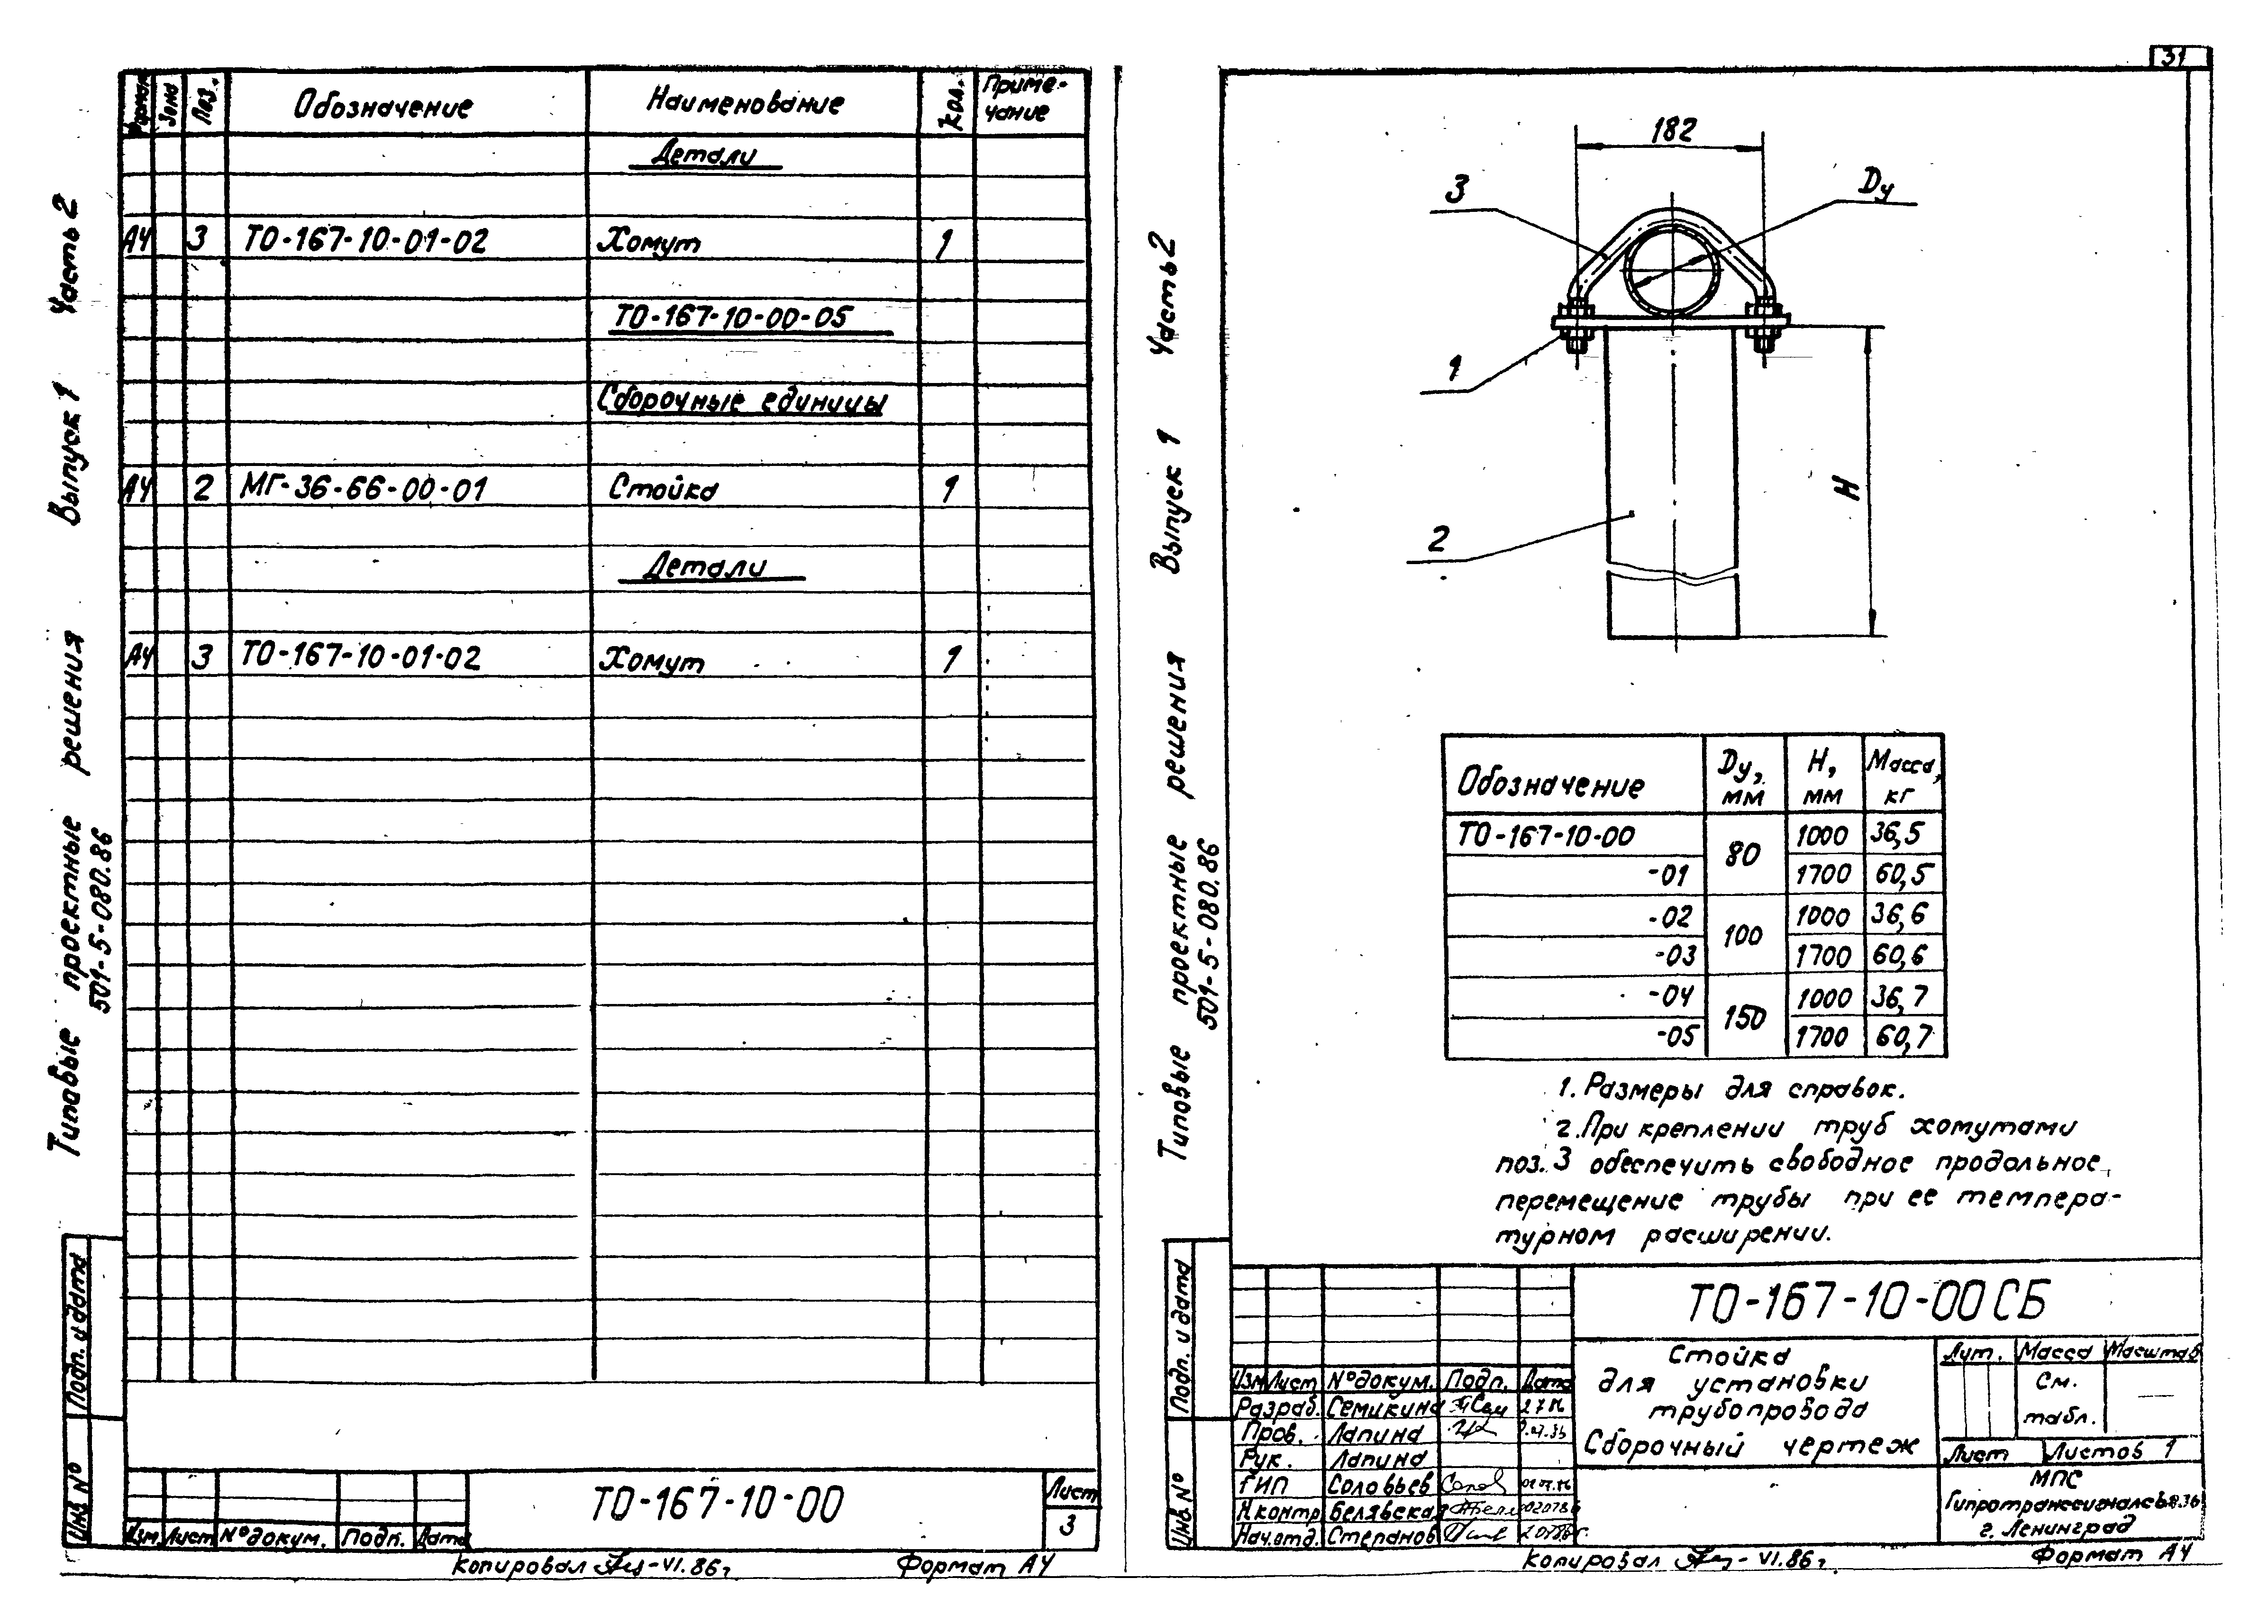 Формат
Зона
Поз.
Обозначение
Наименование
Кол.
Приме-
чание
Детали
А4 3 ТО-167-10-01-02 Хомут 1
ТО-167-10-00-05
Сборочные единицы
А4 2 МГ-36-66-00-01 Стойка 1
Детали
А4 3 ТО-167-10-01-02 Хомут 1
Типовые проектные решения Выпуск 1 Часть 2
501-5-080.86
Подп. и дата
Инв. №
Изм Лист № докум. Подп. Дата
ТО-167-10-00
Лист
3
Копировал
-VI.86г
Формат А4
31
182
Dу
3
1
2
H
Обозначение
Dу, мм
H, мм
Масса, кг
ТО-167-10-00 80 1000 36,5
-01 1700 60,5
-02 100 1000 36,6
-03 1700 60,6
-04 150 1000 36,7
-05 1700 60,7
1. Размеры для справок.
2. При креплении труб хомутами
поз. 3 обеспечить свободное продольное
перемещение трубы при ее темпера-
турном расширении.
Типовые проектные решения Выпуск 1 Часть 2
501-5-080.86
Подп. и дата
Инв. №
ТО-167-10-00 СБ
Изм Лист № докум. Подп. Дата
Разраб. Семикина
Пров. Лапина
Рук. Лапина
ГИП Соловьев
Н.контр Белявская
Нач.отд. Степанов
Стойка
для установки
трубопровода
Сборочный чертеж
Лит. Масса Масштаб
См.
табл.
—
Лист Листов 1
МПС
Гипротранссигналсвязь
г. Ленинград
Копировал
-VI.86г
Формат А4